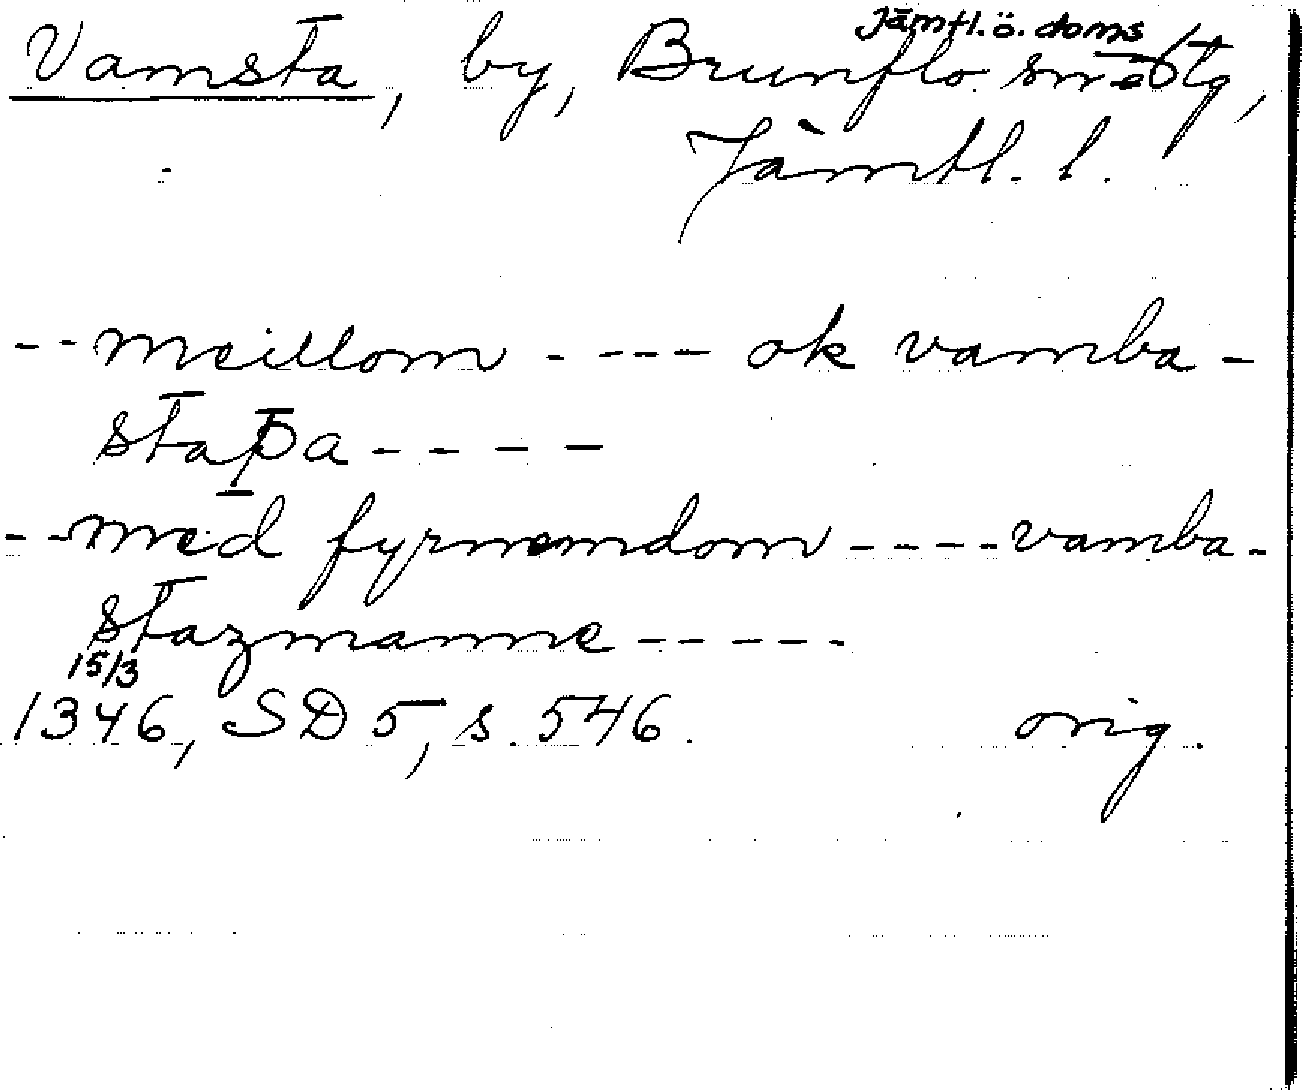 Jämtl. ö. doms
Vamsta, by, Brunflo sn o tg,
Jämtl. l.
-- meillom - --- ok vamba-
staþa ----
-- med fyrnemdom ---- vamba-
stazmanne -----
15/3
1346, SD 5, s. 546. orig.